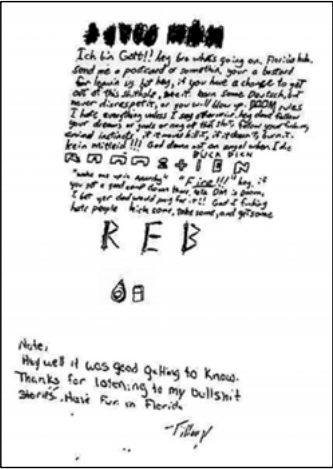 Ich bin Gott!! hey bro whats going on. Florida huh.
send me a postcard or somethin, your a bastard
for leavin us but hey, if you have a chance to get
out of this shithole, take it. learn some Deutsch, but
never disrespect it, or you will blow up. DOOM rules
I hate everything unless I say otherwise. hey dont follow
your dreams or goals or any of that shit, follow your fucking
animal instincts, if it moves kill it, if it doesn't, burn it.
kein mitleid!!! God damn not an angel when I die
FUCK DICH
"wake me up in anarchy" "Fine!!!" hey, if
you set a good
I bet yer dad would pay for it!! God I fucking
hate people kick some, take some, and get some
R E B
Note,
Hey well it was good getting to know.
Thanks for listening to my bullshit
stories. Have fun in Florida
-Tiffany